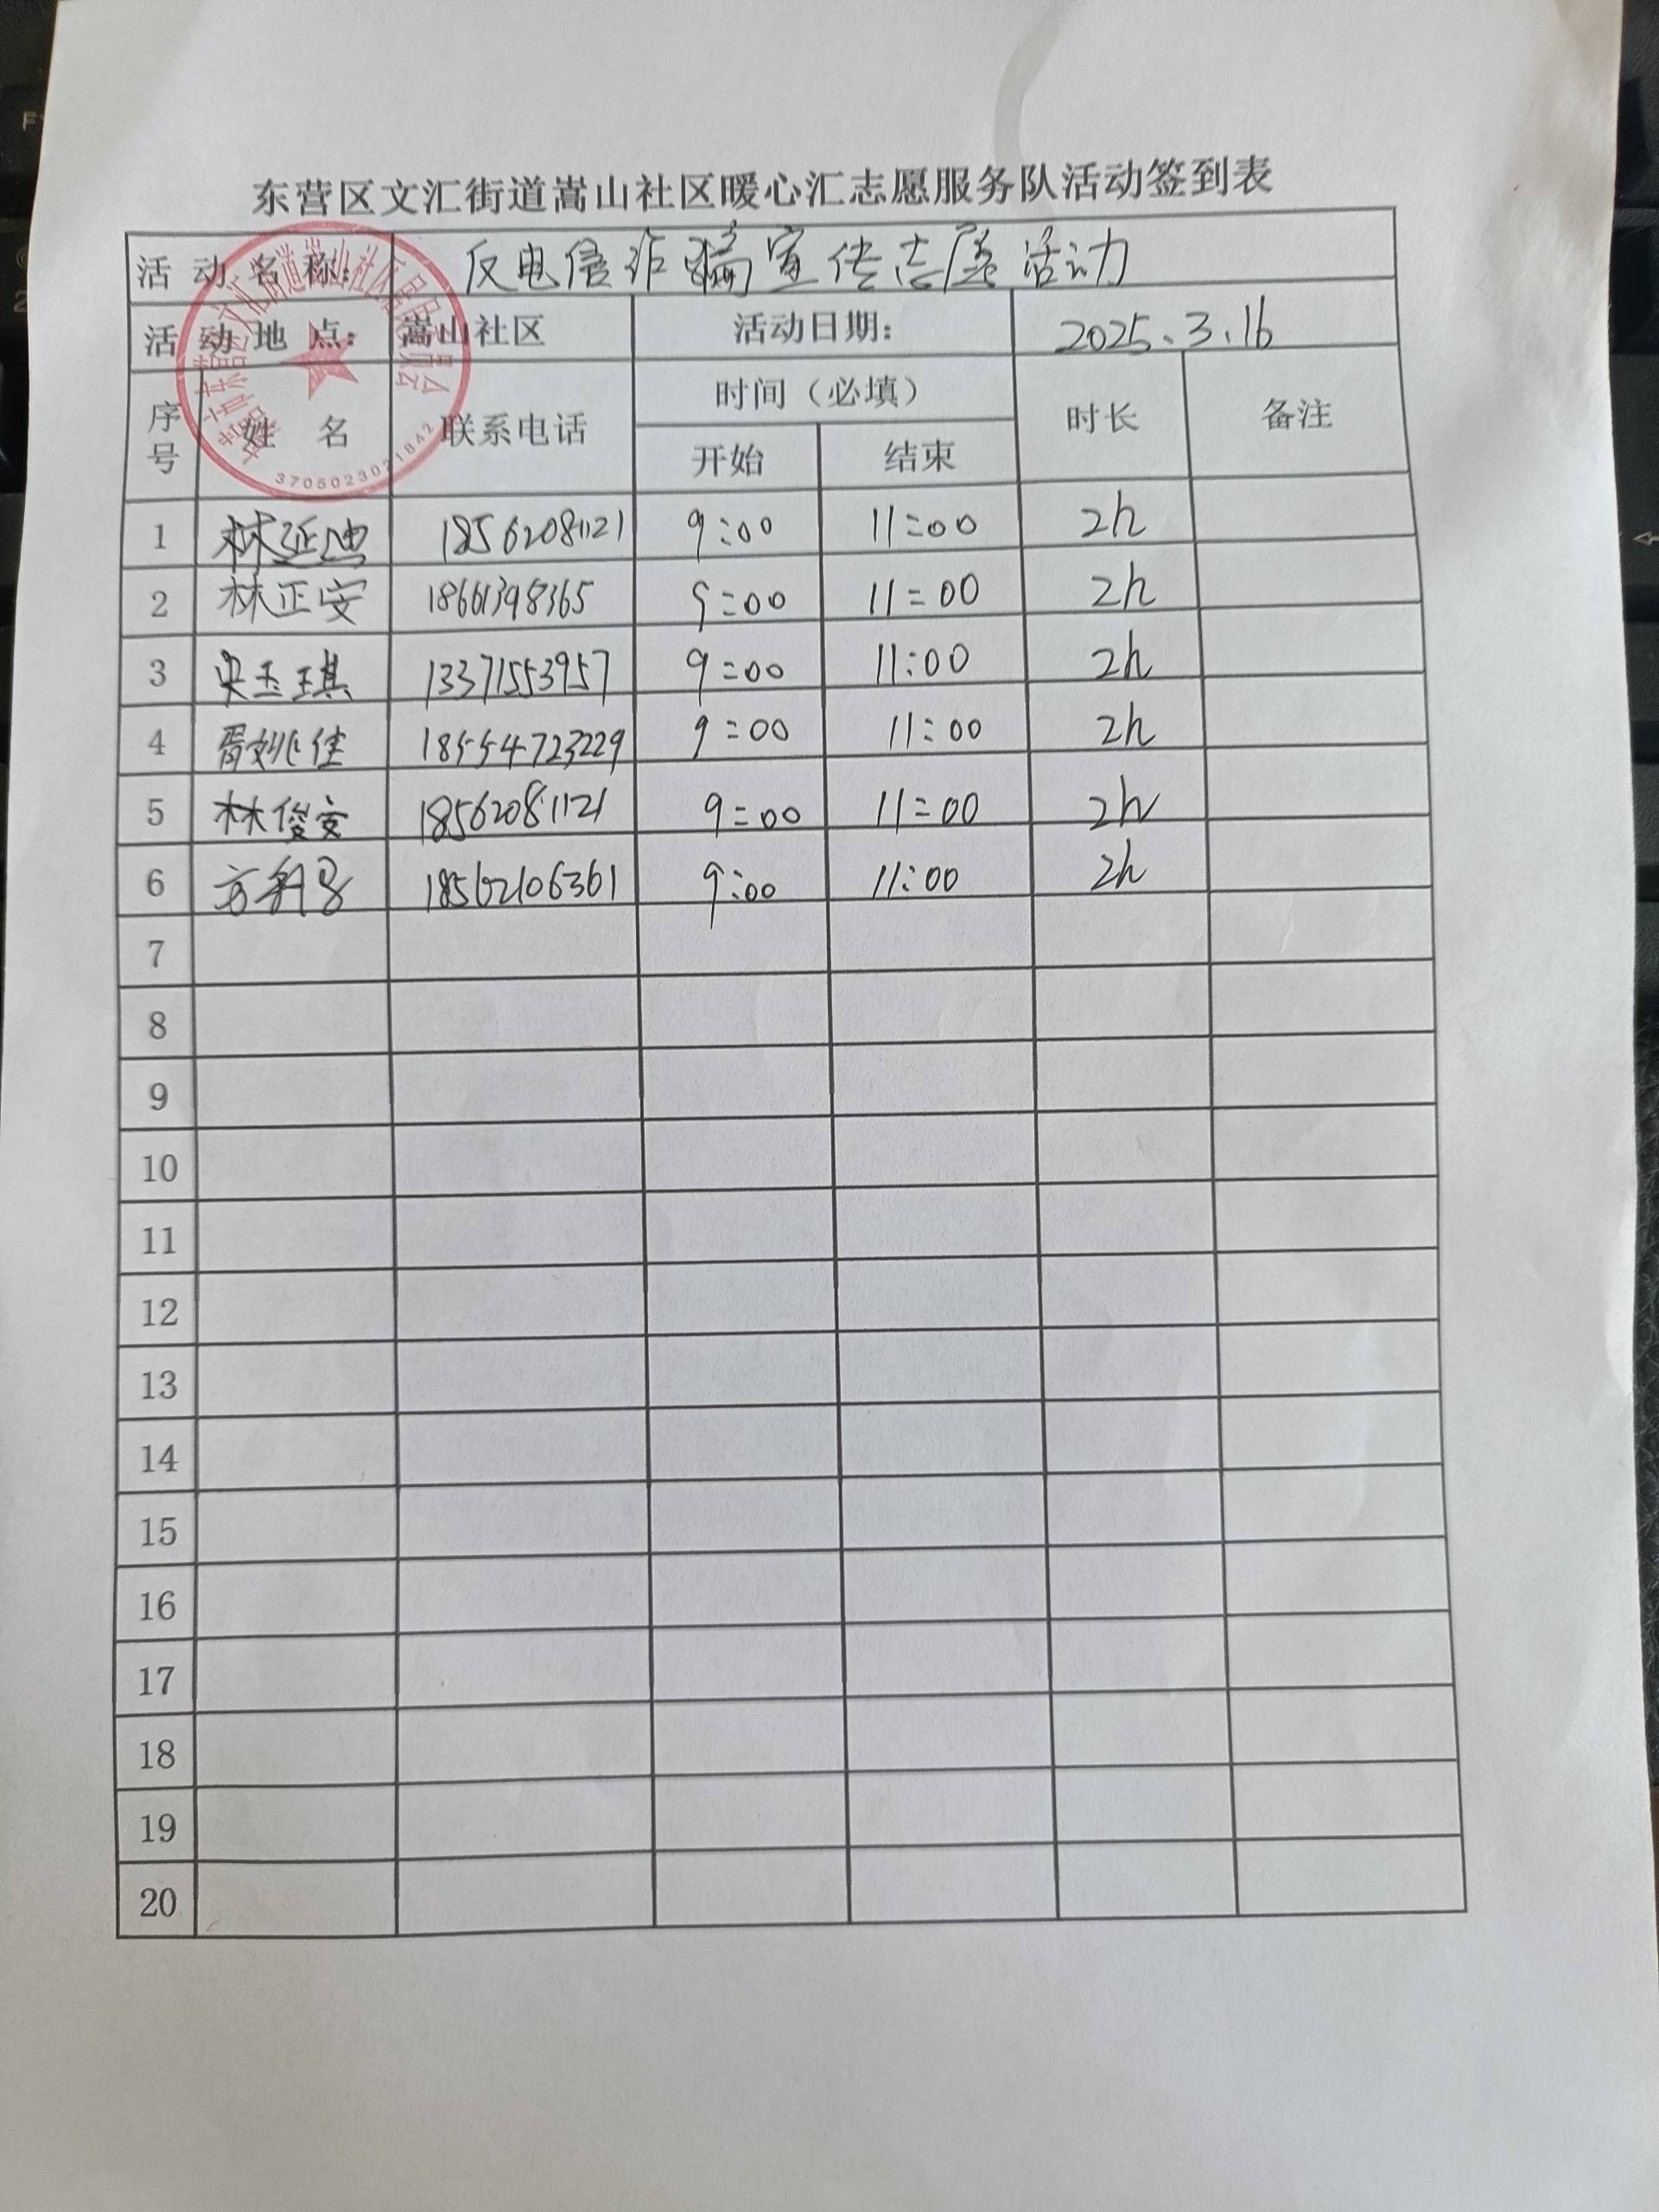 东营区文汇街道嵩山社区暖心汇志愿服务队活动签到表
活动名称： 反电信诈骗宣传志愿活动
活动地点： 嵩山社区 活动日期： 2025.3.16
序号 姓名 联系电话 时间（必填） 时长 备注
开始 结束
3705023021842
1 林延迪 18562081121 9:00 11:00 2h
2 林正安 18661398365 9:00 11:00 2h
3 玉琪 13371553957 9:00 11:00 2h
4 胥姚佳 18554723229 9:00 11:00 2h
5 林俊安 18562081121 9:00 11:00 2h
6 方 18562106361 9:00 11:00 2h
7
8
9
10
11
12
13
14
15
16
17
18
19
20